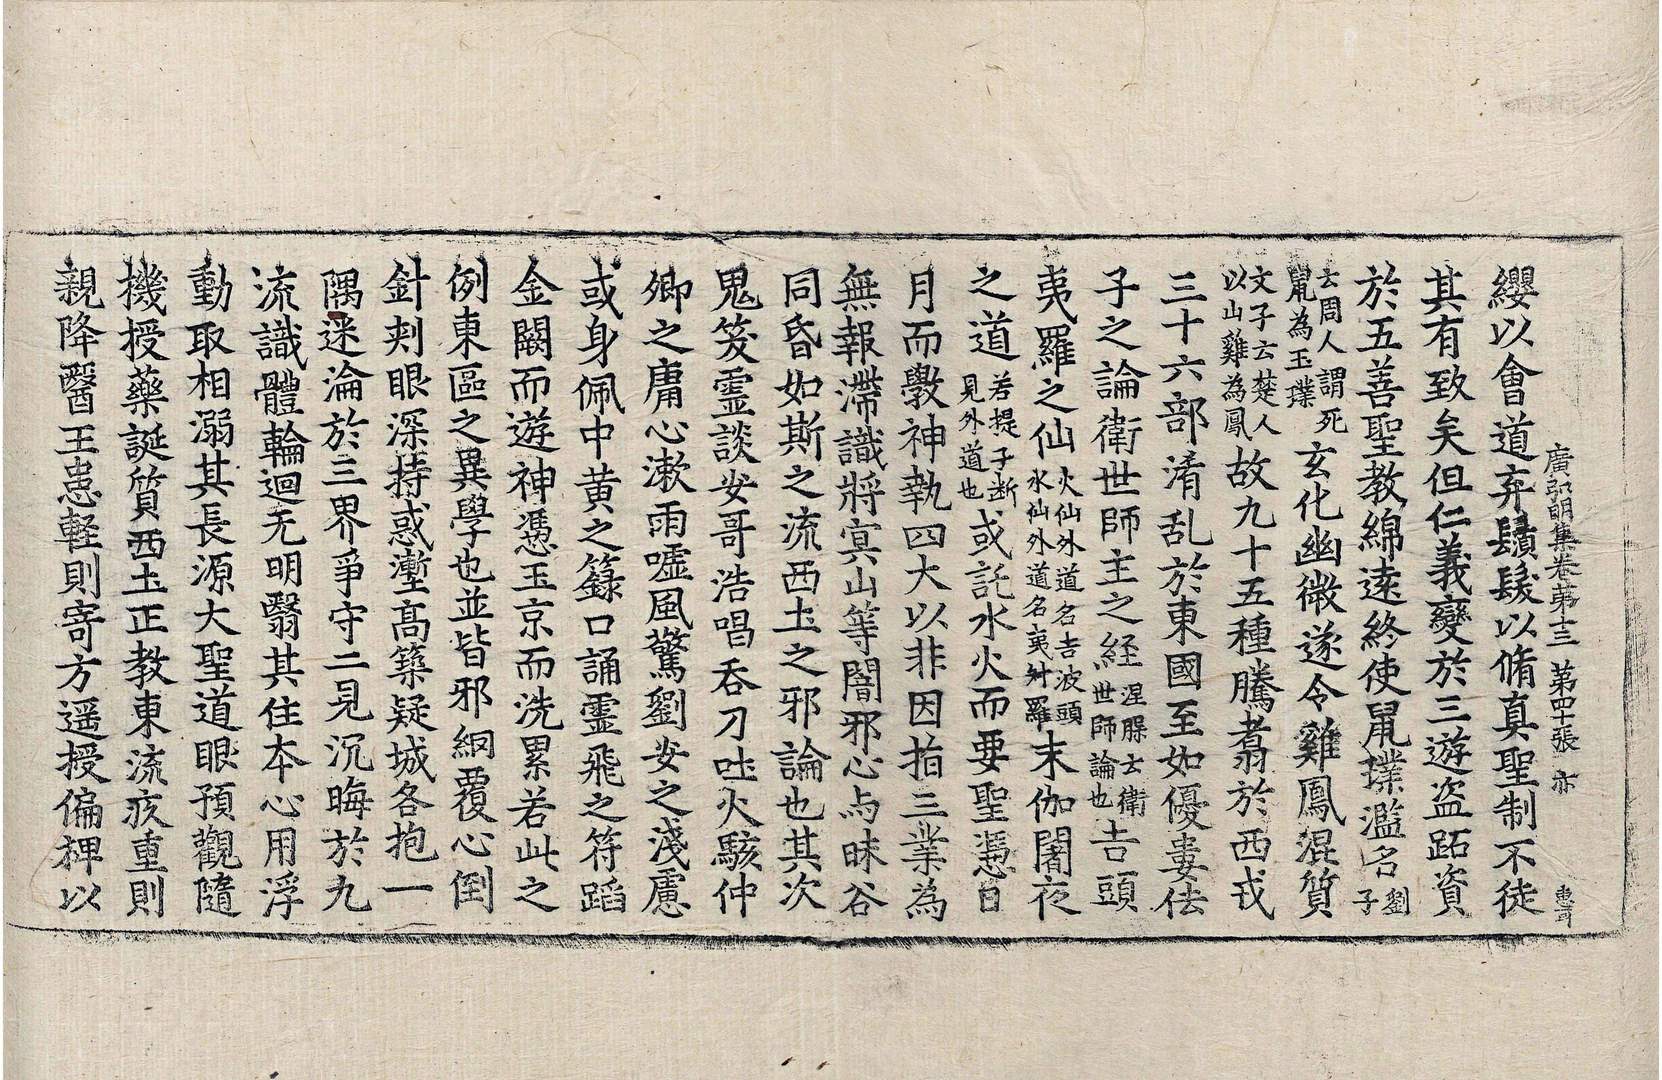 廣弘明集卷第十三 第四十張 亦 惠可
纓以會道弃鬚髮以脩真聖制不徒
其有致矣但仁義變於三遊盜跖資
於五善聖教綿遠終使鼠璞濫名劉子
云周人謂死鼠為玉璞玄化幽微遂令雞鳳混質
文子云楚人以山雞為鳳故九十五種騰翥於西戎
三十六部淆乱於東國至如優婁佉
子之論衛世師主之経涅脭云衛世師論也吉頭
夷羅之仙火仙外道名吉波頭水仙外道名夷㪷羅末伽闍夜
之道若提子断見外道也或託水火而要聖憑日
月而斅神執四大以非因指三業為
無報滯識將冥山等闇邪心与昧谷
同昏如斯之流西土之邪論也其次
鬼笑靈談安哥浩唱吞刀吐火駭仲
卿之庸心漱雨嘘風驚劉安之淺慮
或身佩中黄之籙口誦靈飛之符蹈
金闕而遊神憑玉京而洗累若此之
例東區之異學也並皆邪網覆心倒
針刾眼深持惑壍高築疑城各抱一
隅迷淪於三界爭守二見沉晦於九
流識體輪迴无明翳其住夲心用浮
動取相溺其長源大聖道眼預觀隨
機授藥誕質西土正教東流疾重則
親降醫王患軽則寄方遥授偏裨以